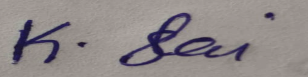 K. Sai